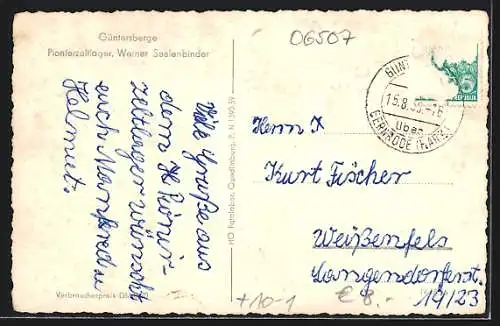 Güntersberge
Pionierzeltlager "Werner Seelenbinder"
Viele Grüße aus
dem Pionir-
zeltlager wünscht
euch Manfred u
Helmut.
Verbraucherpreis DM
HO Fotolabor, Quedlinburg, P. N 1590/59
06507
GUNT
15.8.
über
GERNRODE (HARZ)
Herrn
Kurt Fischer
Weißenfels
Langendorferst.
19/23
+10-1
€ 8.-